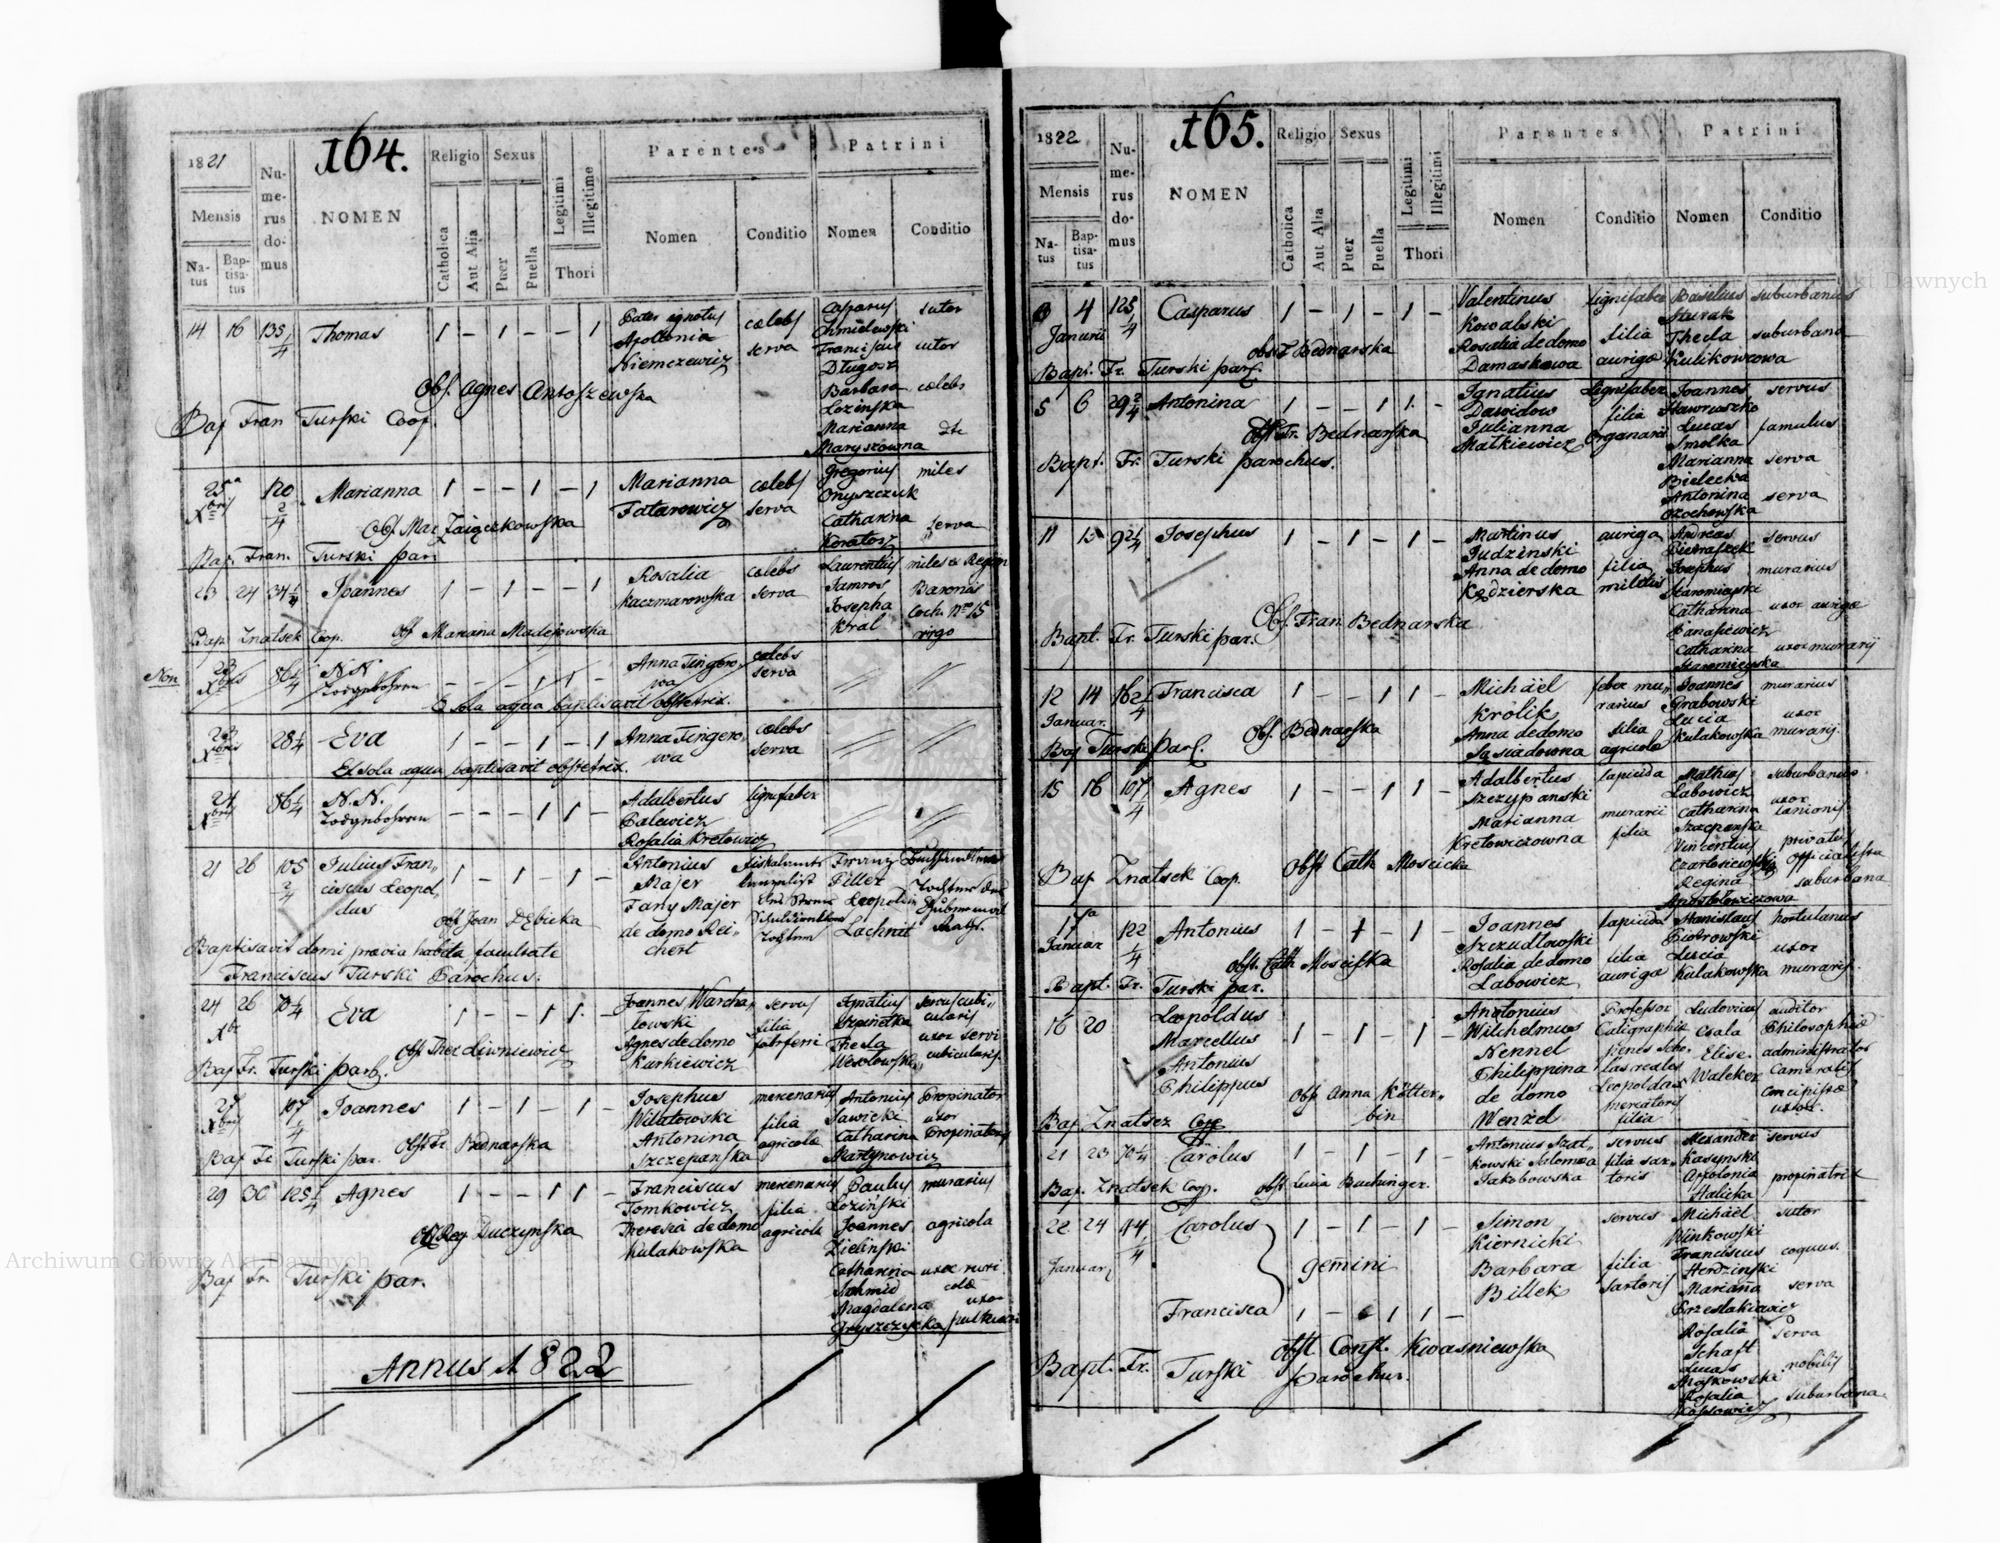 164.
1821
Mensis
Natus
Baptisatus
Numerus domus
NOMEN
Religio
Catholica
Aut Alia
Sexus
Puer
Puella
Legitimi
Illegitime
Thori
Parentes
Nomen
Conditio
Patrini
Nomen
Conditio
14 16 135/4 Thomas 1 - 1 - - 1
Pater ignotus
Apolonia
Niemczewicz
cælebs
serva
Casparus
Chmielewski
Franciscus
Długosz
Barbara
Lozinska
Marianna
Maryszowna
sutor
sutor
cælebs
Obs. Agnes Antoszewska
Bap Fran Turski Coop.
Xbris 120 2/4 Marianna 1 - - 1 - 1
Marianna
Tatarowicz
cælebs
serva
Gregorius
Onyszczuk
Catharina
Koratosz
miles
serva
Obs. Mar. Zaiączkowska
Bap. Fran. Turski par.
23 24 34 1/4 Joannes 1 - 1 - - 1
Rosalia
Kaczmarowska
cælebs
serva
Laurentius
Jamros
Josepha
Kral
miles
Baronis
virgo
Bap. Znatsek Coop. Obs. Mariana Madejowska
Non
23 Xbris 86 1/4 N. N.
Todtgebohren
Anna Tingero,,
wa
cælebs
serva
E sola aqua baptisavit obstetrix.
23 Xbris 28 1/4 Eva 1 - - 1 - 1
Anna Tingero,,
wa
cælebs
serva
Et sola aqua baptisavit obstetrix.
24 Xbris 86 1/4 N. N.
Todtgebohren - - - 1 1 -
Adalbertus
Palewicz
Rosalia Kretowicz
lignifaber
21 26 105 2/4 Julius Fran,,
ciscus Leopol,,
dus 1 - 1 - 1 -
Antonius
Majer
Fany Majer
de domo Rei,,
chert
Franz
Filler
Leopoldin
Lachnit
Obs. Joan Dębicka
Baptisavit domi prævia habita facultate
Franciscus Turski Parochus.
24 26 Xbr 70 1/4 Eva 1 - - 1 1 -
Joannes Warcha,,
łowski
Agnes de domo
Kurkiewicz
servus
filia
fabrferri
Ignatius
Szpinetka
Thecla
Wesołowska
servus cubi,,
cularis
uxor servi
cubicularis.
Obs. Ther. Liwniewicz
Bap Fr. Turski par.
27 Xbris 107 1/4 Joannes 1 - 1 - 1 -
Josephus
Wilatowski
Antonina
Szczepanska
mercenarius
filia
agricolæ
Antonius
Sawicki
Catharina
Martynowicz
Propinator
uxor
Propinatoris
Obst. Fr. Bednarska
Bap Fr Turski par.
29 30 125 1/4 Agnes 1 - - 1 1 -
Franciscus
Tomkowicz
Theresia de domo
Kulakowska
mercenarius
filia
agricolæ
Paulus
Loziński
Joannes
Zieliński
Catharina
Schmid
Magdalena
Gryszczycka
murarius
agricola
uxor ruri
colæ
uxor
Obs. Reg Duczynska
Bap Fr. Turski par.
Annus 1822
165.
1822
Mensis
Natus
Baptisatus
Numerus domus
NOMEN
Religio
Catholica
Aut Alia
Sexus
Puer
Puella
Legitimi
Illegitimi
Thori
Parentes
Nomen
Conditio
Patrini
Nomen
Conditio
3 4 125/4 Casparus 1 - 1 - 1 -
Januarii
Valentinus
Kowalski
Rosalia de domo
Damaskowa
lignifaber
filia
aurigæ
Basilius
Sturak
Thecla
Kulikowcowa
suburbanus
suburbana
Obst. Bednarska
Bapt. Fr. Turski par.
5 6 29 2/4 Antonina 1 - - 1 1 -
Ignatius
Dawidow
Julianna
Matkiewicz
Lignifaber
filia
Organarii
Joannes
Hawruszko
Lucas
Smolka
Marianna
Bielecka
Antonina
Ozochowska
servus
famulus
serva
serva
Obst. Fr. Bednarska
Bapt. Fr. Turski parochus.
11 13 92/4 Josephus 1 - 1 - 1 -
Martinus
Judzinski
Anna de domo
Kędzierska
auriga
filia
militis
Andreas
Pietraszek
Josephus
Staromiejski
Catharina
Panasiewicz
Catharina
Staromiejska
servus
murarius
uxor aurigæ
uxor murarij
Obs. Fran Bednarska
Bapt. Fr. Turski par.
12 14 162/4 Francisca 1 - - 1 1 -
Januar.
Michäel
Królik
Anna de domo
Sąsiadowna
faber mu,,
rarius
filia
agricolæ
Joannes
Grabowski
Lucia
Kulakowska
murarius
uxor
murarij.
Obs. Bednarska
Bap Turski par.
15 16 107/4 Agnes 1 - - 1 1 -
Adalbertus
Szczypanski
Marianna
Kretowiczowna
lapicida
murarii
filia
Mathias
Labowicz
Catharina
Szczepanska
Vincentius
Czartoriewski
Regina
Antosłowiczowa
suburbanus
uxor
lanionis
privatus
officialista
suburbana
Obst Cath Moscicka
Bap Znatsek Coop.
17 Januar 122 1/4 Antonius 1 - 1 - 1 -
Joannes
Szczudłowski
Rosalia de domo
Labowicz
lapicida
filia
auriga
Stanislaus
Piotrowski
Lucia
Kulakowska
hortulanus
uxor
murarij.
Obst. Cath Mosciska
Bapt. Fr. Turski par.
16 20 Leopoldus
Marcellus
Antonius
Philippus 1 - 1 - 1 -
Antonius
Wilchelmus
Nennel
Philippina
de domo
Wenzel
Professor
Caligraphiæ
penes Scho,,
las reales
Leopoldas
mercatoris
filia
Ludovicus
Csala
Elise.
Walcker
auditor
Philosophiæ
administrator
Cameralis
Concipistæ
uxor.
Obst Anna Kötter,,
bin
Bap Znatsez Coop
21 23 70 1/4 Carolus 1 - 1 - 1 -
Antonius Szat,,
kowski Salomea
Jakobowska
servus
filia sar,,
toris
Alexander
Kasynski
Appolonia
Halicka
servus
propinatrix
Bap. Znatsek Coop. Obst Lucia Buchinger.
22 24 44/4 Carolus 1 - 1 - 1 -
Januar
gemini
Francisca 1 - - 1 1 -
Simon
Kiernicki
Barbara
Billek
servus
filia
sartoris
Michäel
Winkowski
Franciscus
Herdzinski
Marianna
Przeslakiewicz
Rosalia
Schaft
Lucas
Maskowski
Rosalia
Kossowicz
sutor
coquus.
serva
serva
nobilis
suburbana
Obst Const. Kwasniewska
Bapt. Fr. Turski parochus.
Archiwum Główne Akt Dawnych
Archiwum Główne Akt Dawnych